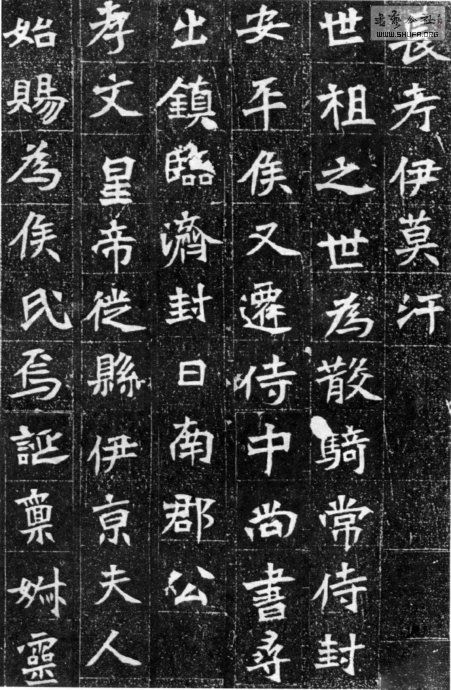 長考伊莫汗
世祖之世為散騎常侍封
安平侯又遷侍中尚書尋
出鎮臨濟封日南郡公
孝文皇帝徙縣伊亰夫人
始賜為侯氏焉誕稟靈
WWW.SHUFA.ORG